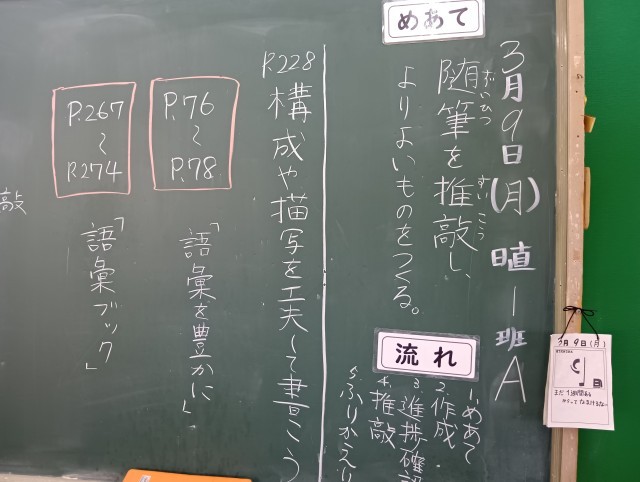 3月9日(月) 日直 1班A
めあて
ずいひつ すいこう
随筆を推敲し、
よりよいものをつくる。
流れ
1.めあて
2.作成・
3.進捗確認
4.推敲
5.ふりかえり
P.228
構成や描写を工夫して書こう
P.76
〜
P.78
「語彙を豊かに」
P.267
〜
P.274
「語彙ブック」
敲
3月9日(月)